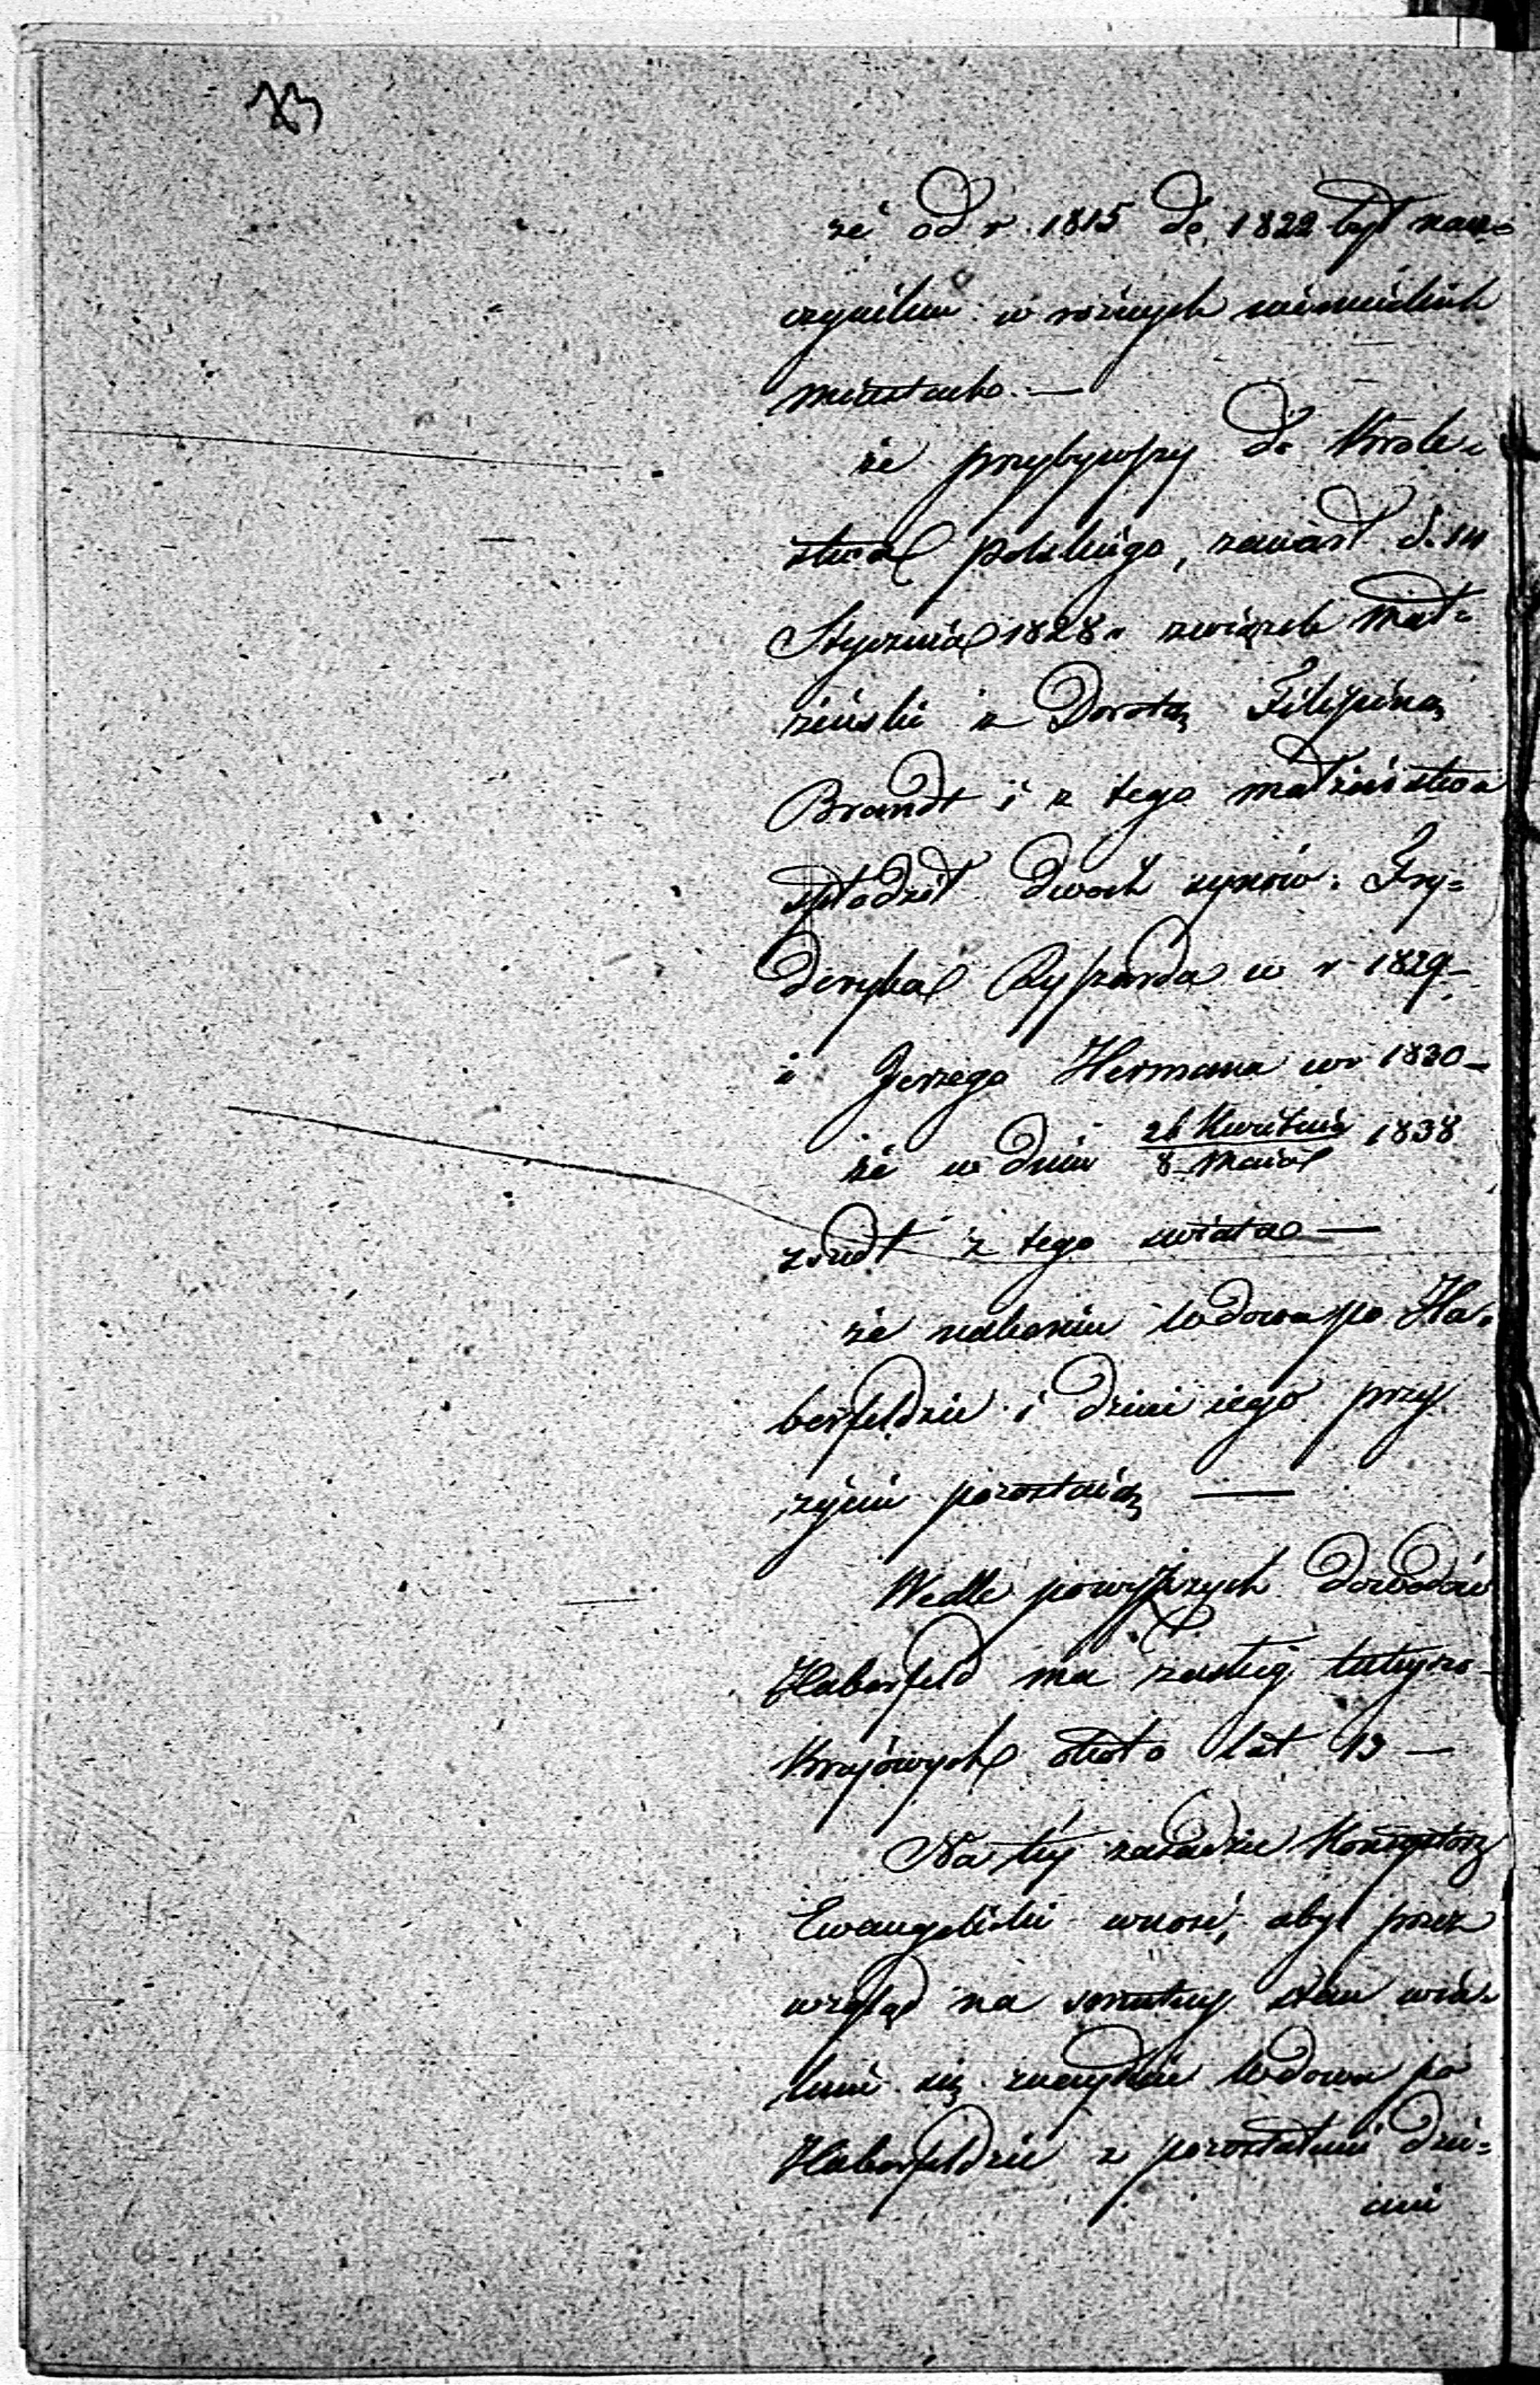 73
że od r. 1815 do 1822 był nau=
czycielem w rożnych niemieckich
miastach. —
że przybywszy do Krole=
stwa polskiego, zawarł d. 14
Stycznia 1828 r związek mał=
żeński z Dorotą Filipiną
Brandt i z tego małżeństwa
spłodził dwoch synów: Fry=
deryka Ryszarda w r 1829 —
i Jerzego Hermana w r 1830 —
że w dniu 26 Kwietnia / 8 Maia 1838
zszedł z tego swiata —
że nakoniec wdowa po Ha=
berfeldzie i dzieci iego przy
życiu pozostaią —
Wedle powyższych dowodów
Haberfeld ma zasług tutejszo=
krajowych około lat 13 —
Na tej zasadzie Konsystorz
Ewangelicki wnosi, aby przez
wzgląd na smutny stan w ia=
kim się znayduie wdowa po
Haberfeldzie z pozostałemi dzie=
cmi